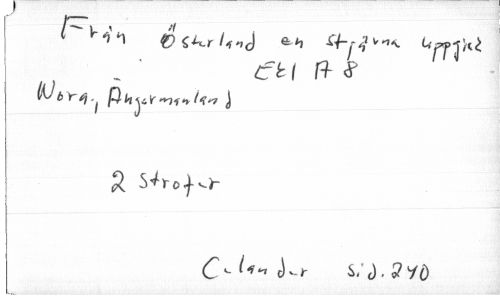 Från Österland en stjärna uppgick
Ekl A 8
Nora, Ångermanland
2 strofer
Celander sid. 240